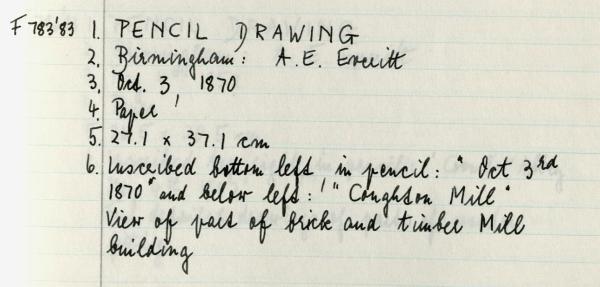 F783'83 1. PENCIL DRAWING
2. Birmingham: A.E. Everitt
3. Oct. 3, 1870
4. Paper
5. 27.1 x 37.1 cm
6. Inscribed bottom left in pencil: "Oct 3rd
1870" and below left: "Coughton Mill"
View of part of brick and timber Mill
building